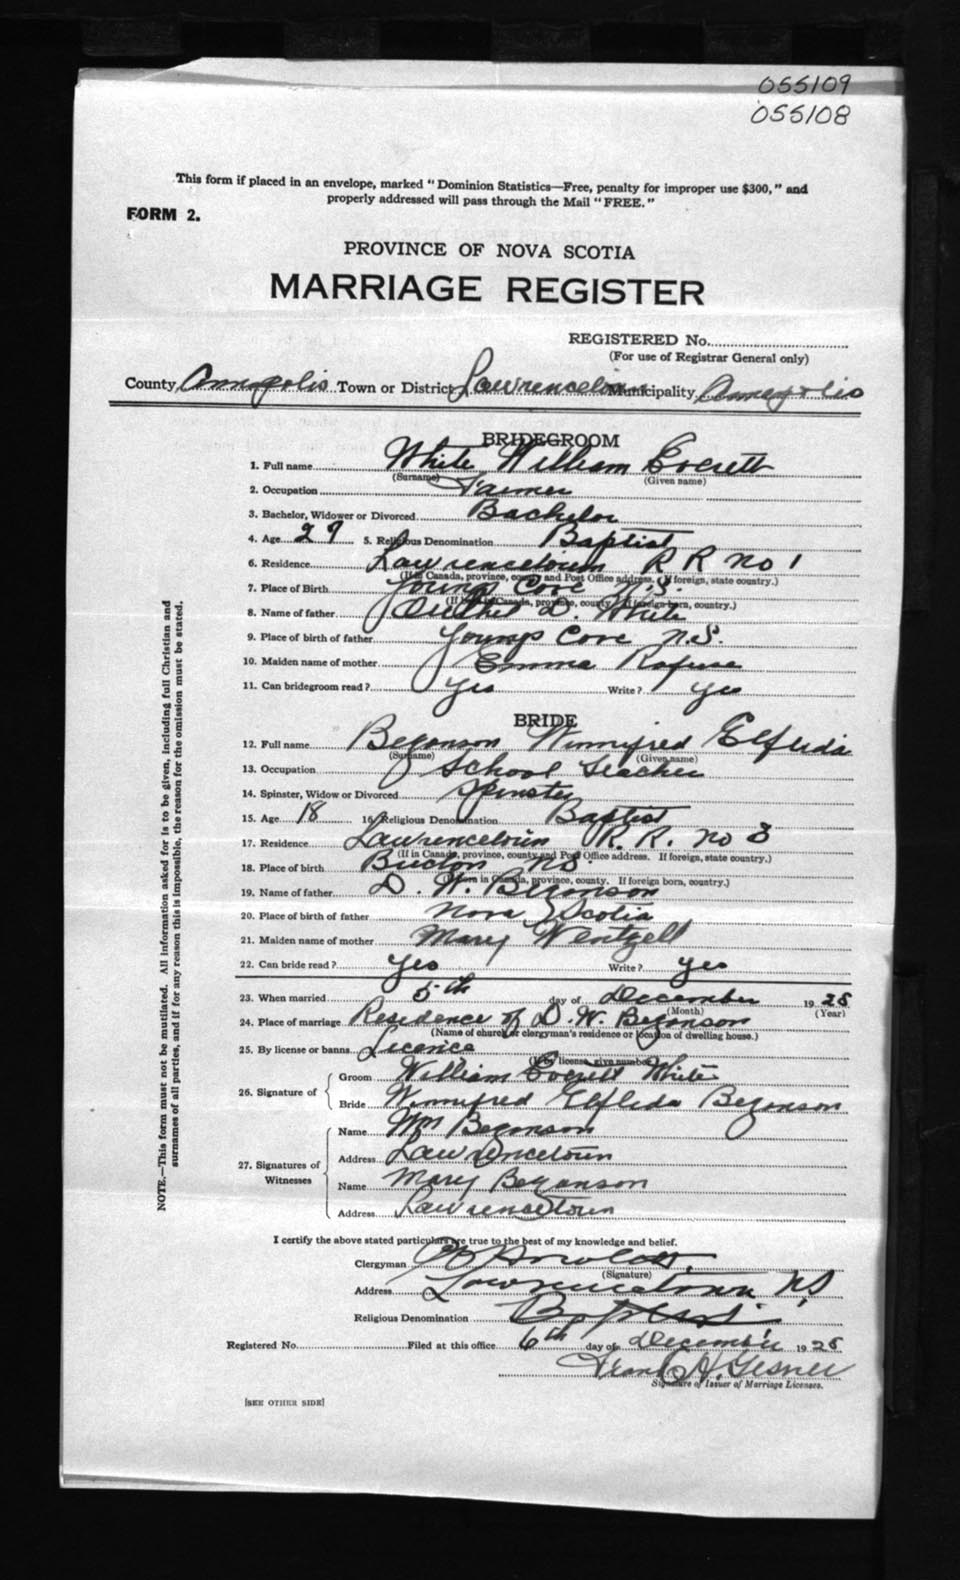 055109
055108
This form if placed in an envelope, marked "Dominion Statistics—Free, penalty for improper use $300," and
properly addressed will pass through the Mail "FREE."
FORM 2.
PROVINCE OF NOVA SCOTIA
MARRIAGE REGISTER
REGISTERED No.
(For use of Registrar General only)
County Annapolis Town or District Lawrencetown Municipality Annapolis
BRIDEGROOM
1. Full name White William Everett
(Surname) (Given name)
2. Occupation Farmer
3. Bachelor, Widower or Divorced Bachelor
4. Age 29 5. Religious Denomination Baptist
6. Residence Lawrencetown R R No 1
(If in Canada, province, county and Post Office address. If foreign, state country.)
7. Place of Birth Youngs Cove N.S.
(If born in Canada, province, county. If foreign born, country.)
8. Name of father D. White
9. Place of birth of father Youngs Cove N.S.
10. Maiden name of mother Emma Rafuse
11. Can bridegroom read? Yes Write? Yes
BRIDE
12. Full name Bezanson Winnifred Elfleda
(Surname) (Given name)
13. Occupation School Teacher
14. Spinster, Widow or Divorced Spinster
15. Age 18 16. Religious Denomination Baptist
17. Residence Lawrencetown R. R. No 3
(If in Canada, province, county and Post Office address. If foreign, state country.)
18. Place of birth N.S.
(If born in Canada, province, county. If foreign born, country.)
19. Name of father D. W. Bezanson
20. Place of birth of father Nova Scotia
21. Maiden name of mother Mary Wentzell
22. Can bride read? Yes Write? Yes
23. When married 5th day of December 1928
(Month) (Year)
24. Place of marriage Residence of D. W. Bezanson
(Name of church or clergyman's residence or location of dwelling house.)
25. By license or banns Licence
(If by license, give number)
26. Signature of Groom William Everett White
Bride Winnifred Elfleda Bezanson
27. Signatures of Witnesses Name Wm Bezanson
Address Lawrencetown
Name Mary Bezanson
Address Lawrencetown
I certify the above stated particulars are true to the best of my knowledge and belief.
Clergyman
(Signature)
Address Lawrencetown N.S.
Religious Denomination Baptist
Registered No. Filed at this office 6th day of December 1928
Frank H. Gesner
Signature of Issuer of Marriage Licenses.
[SEE OTHER SIDE]
NOTE.—This form must not be mutilated. All information asked for is to be given, including full Christian and
surnames of all parties, and if for any reason this is impossible, the reason for the omission must be stated.